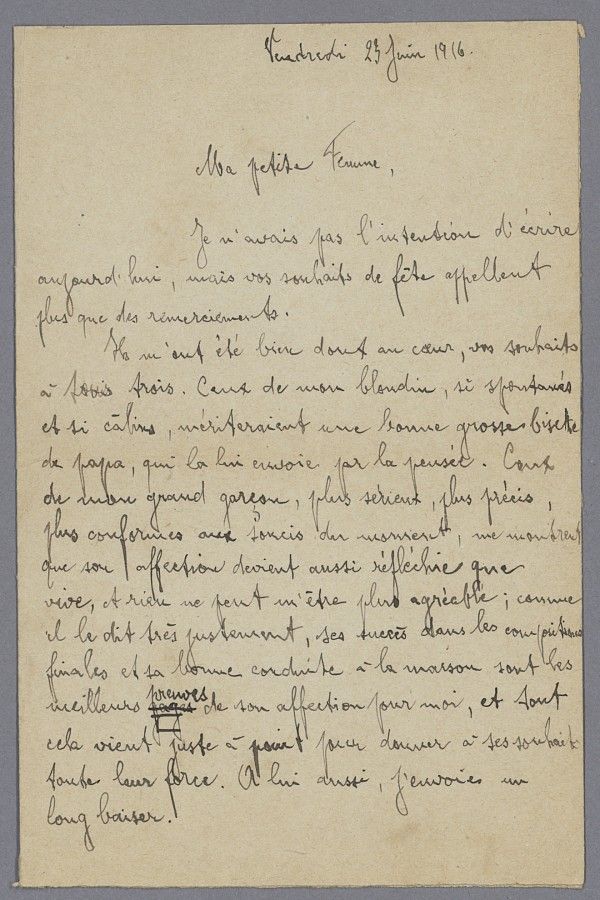 Vendredi 23 Juin 1916.
Ma petite Femme,
Je n'avais pas l'intention d'écrire
aujourd'hui, mais vos souhaits de fête appellent
plus que des remerciements.
Ils m'ont été bien doux au cœur, vos souhaits
à tous trois. Ceux de mon blondin, si spontanés
et si câlins, mériteraient une bonne grosse bisette
de papa, qui la lui envoie par la pensée. Ceux
de mon grand garçon, plus sérieux, plus précis,
plus conformes aux soucis du moment, me montrent
que son affection devient aussi réfléchie que
vive, et rien ne peut m'être plus agréable ; comme
il le dit très justement, ses succès dans les compositions
finales et sa bonne conduite à la maison sont les
meilleurs gages preuves de son affection pour moi, et tout
cela vient juste à point pour donner à ses souhaits
toute leur force. A lui aussi, j'envoie un
long baiser.